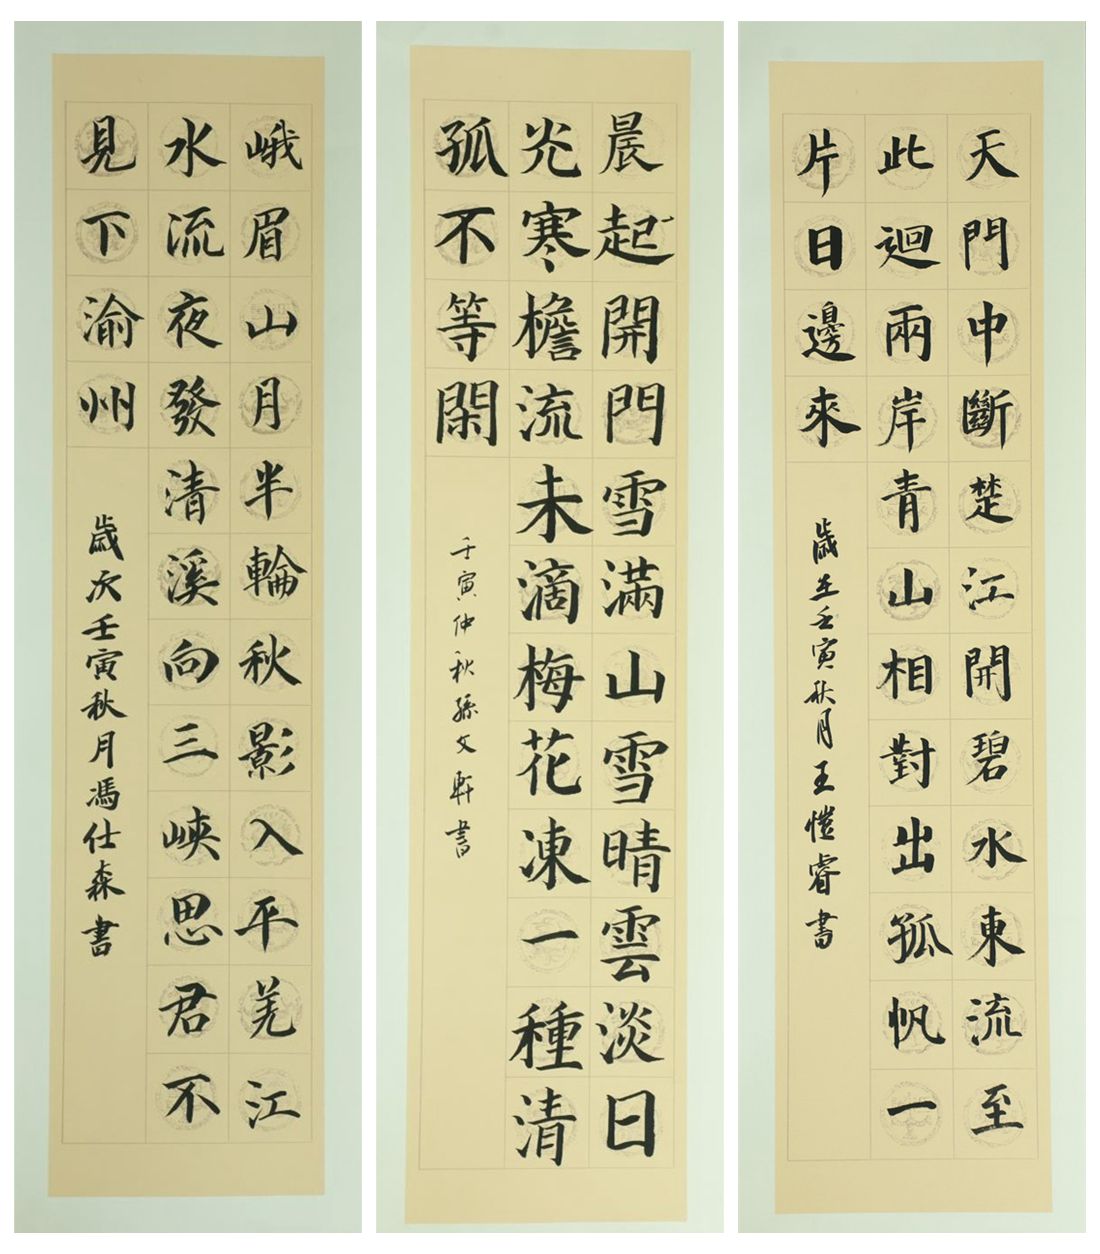 峨眉山月半輪秋影入平羌江
水流夜發清溪向三峽思君不
見下渝州
歲次壬寅秋月馮仕森書
晨起開門雪滿山雪晴雲淡日
光寒檐流未滴梅花凍一種清
孤不等閑
壬寅仲秋孫文軒書
天門中斷楚江開碧水東流至
此迴兩岸青山相對出孤帆一
片日邊來
歲在壬寅秋月王愷睿書